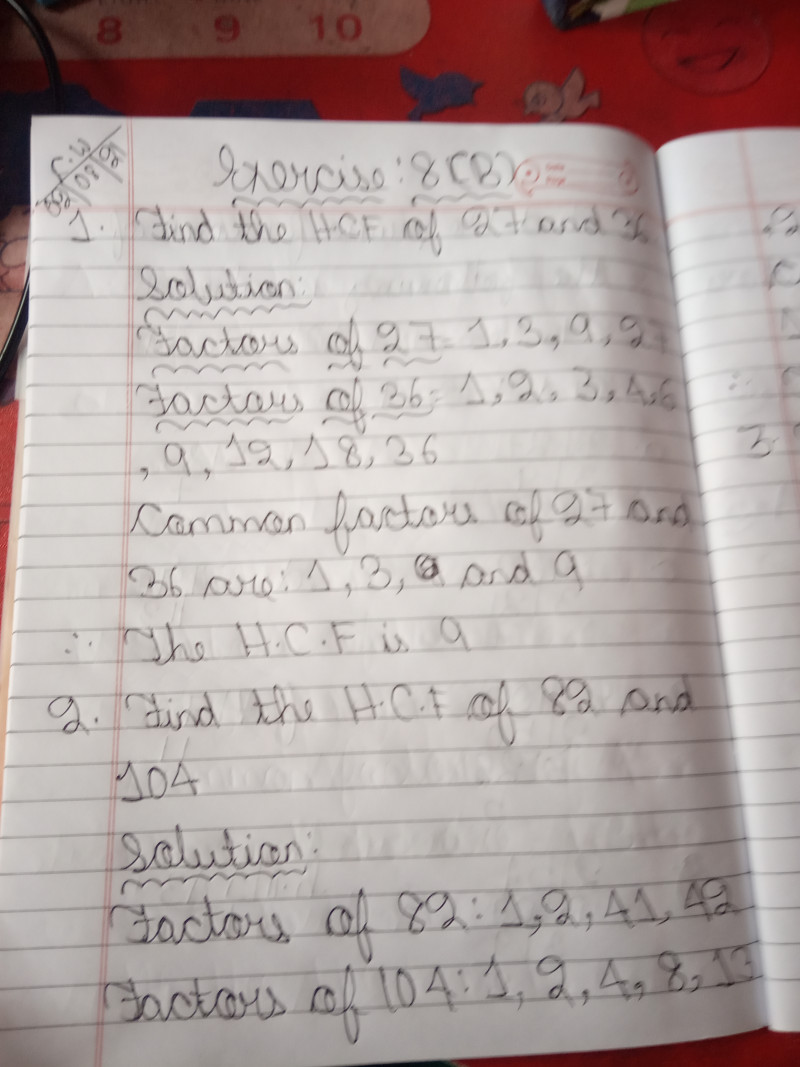 8 9 10
C.W
Exercise: 8(B)
1. Find the H.C.F of 27 and 36
Solution:
Factors of 27= 1, 3, 9, 27
Factors of 36= 1, 2, 3, 4, 6
, 9, 12, 18, 36
Common factors of 27 and
36 are: 1, 3, and 9
∴ The H.C.F is 9
2. Find the H.C.F of 82 and
104
Solution:
Factors of 82: 1, 2, 41, 42
Factors of 104: 1, 2, 4, 8, 13
∴
3.